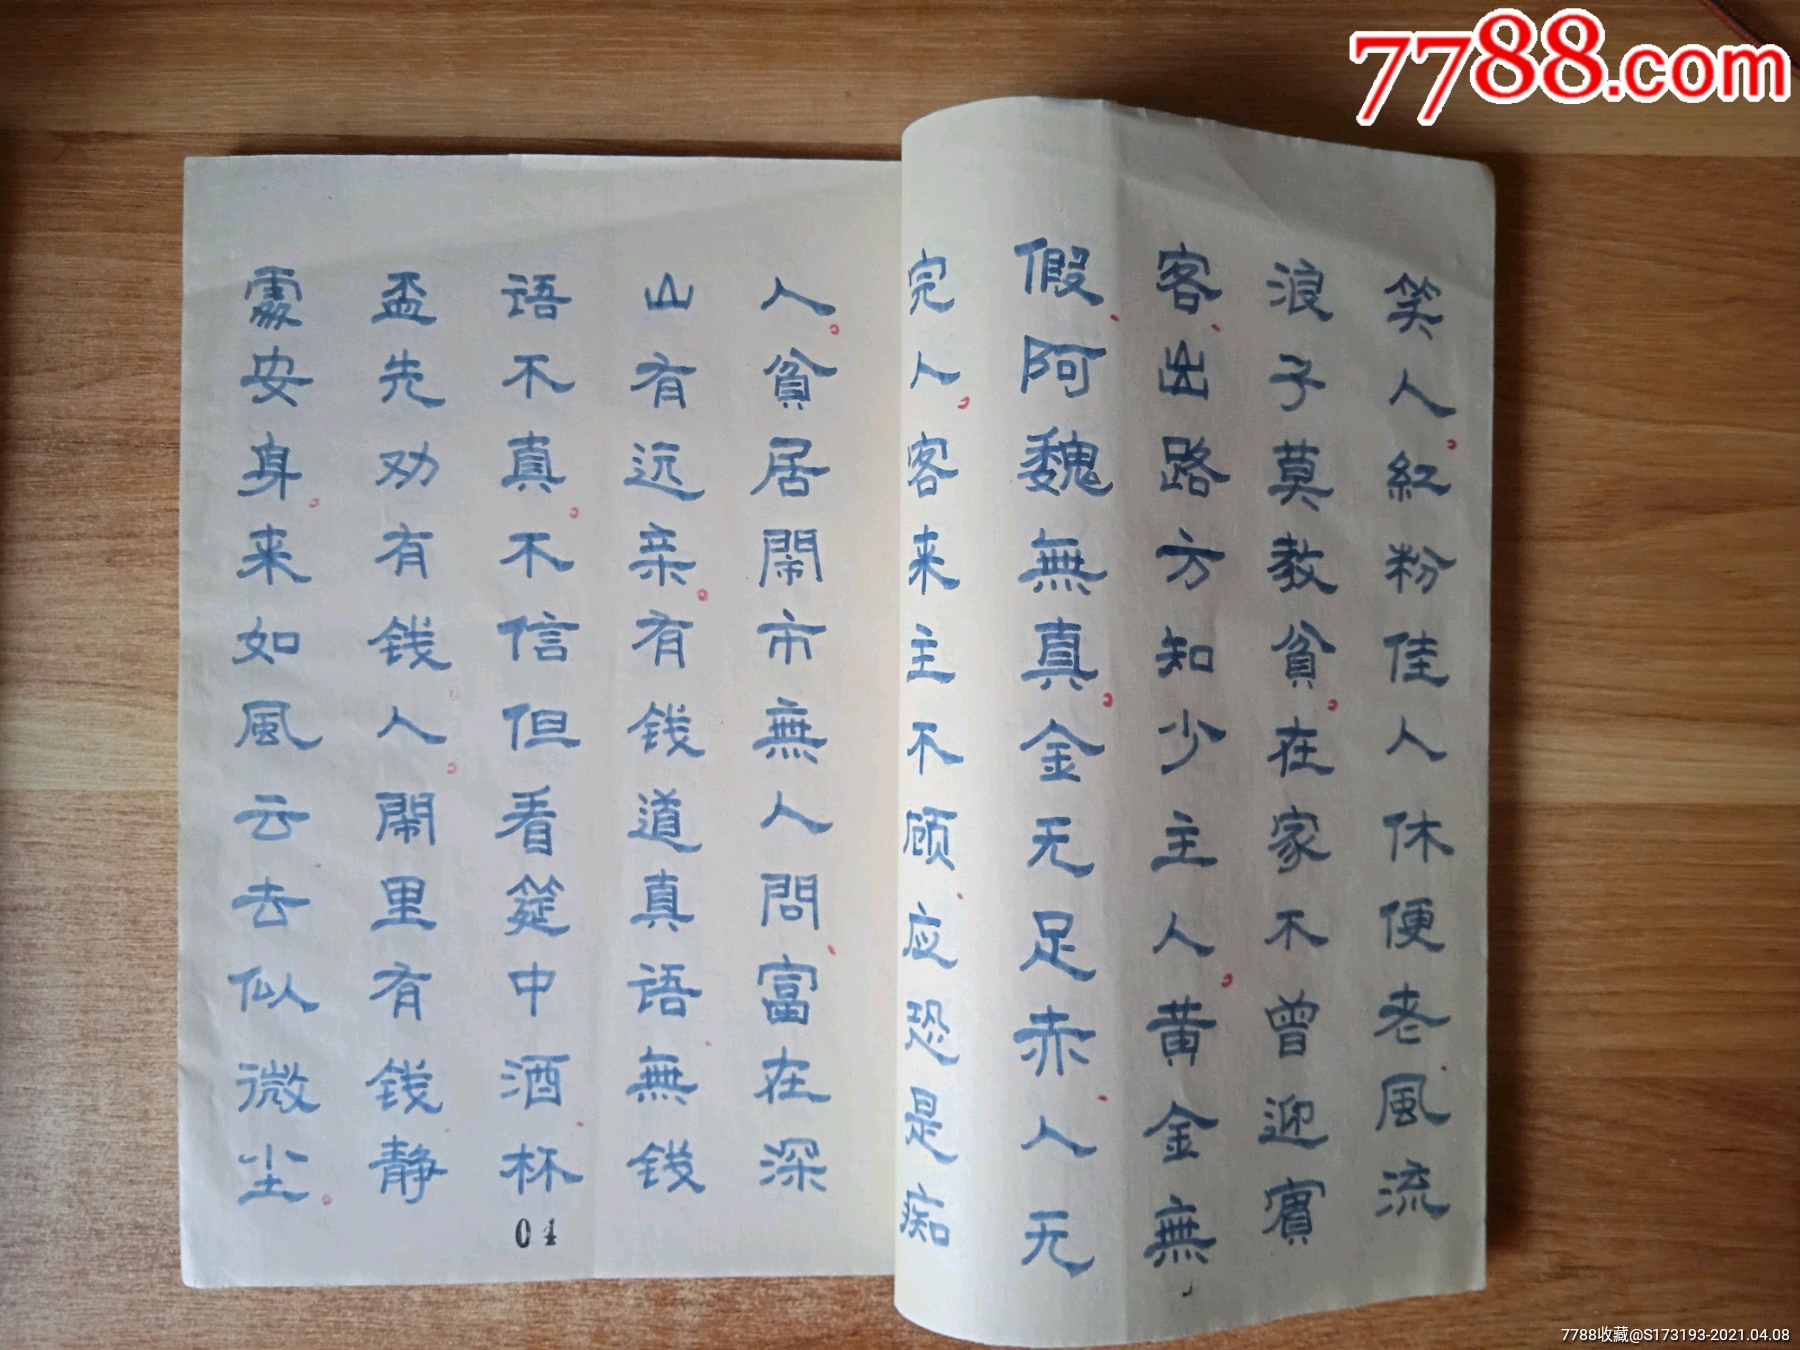 7788.com
笑人。紅粉佳人休便老、風流
浪子莫教貧。在家不曾迎賓
客、出路方知少主人。黄金無
假、阿魏無真。金无足赤、人无
完人。客来主不顾、应恐是痴
人。貧居鬧市無人問、富在深
山有远亲。有钱道真语、無钱
语不真。不信但看筵中酒、杯
盃先劝有钱人。鬧里有钱、静
處安身。来如風云、去似微尘。
04
7788收藏@S173193-2021.04.08